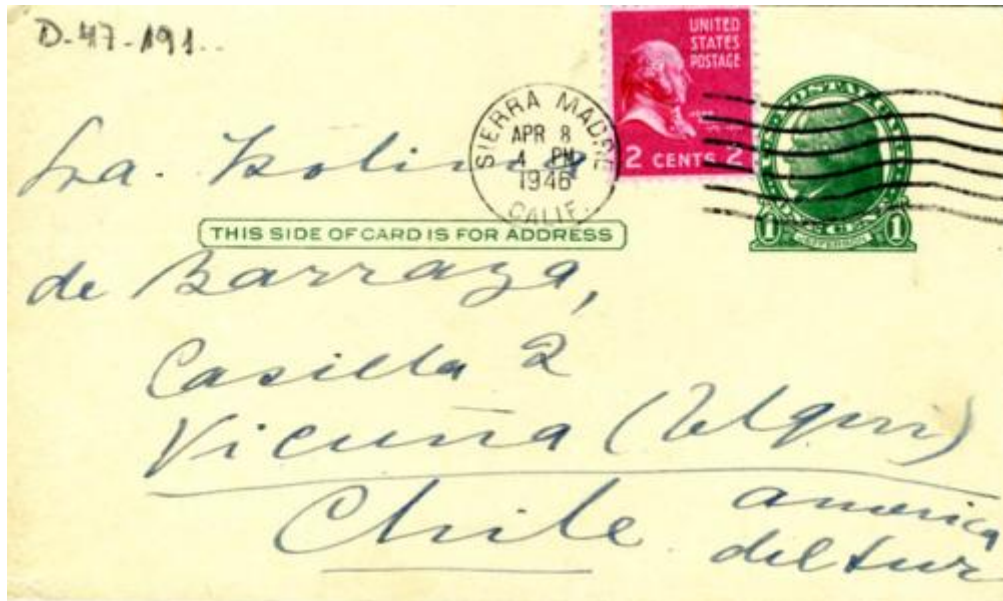 D-47-191..
UNITED
STATES
POSTAGE
2 CENTS 2
SIERRA MADRE
APR 8
4 PM
1946
CALIF.
1 JEFFERSON 1
Sra. Isolina
THIS SIDE OF CARD IS FOR ADDRESS
de Barraza,
Casilla 2
Vicuña (Elqui)
Chile america
del sur